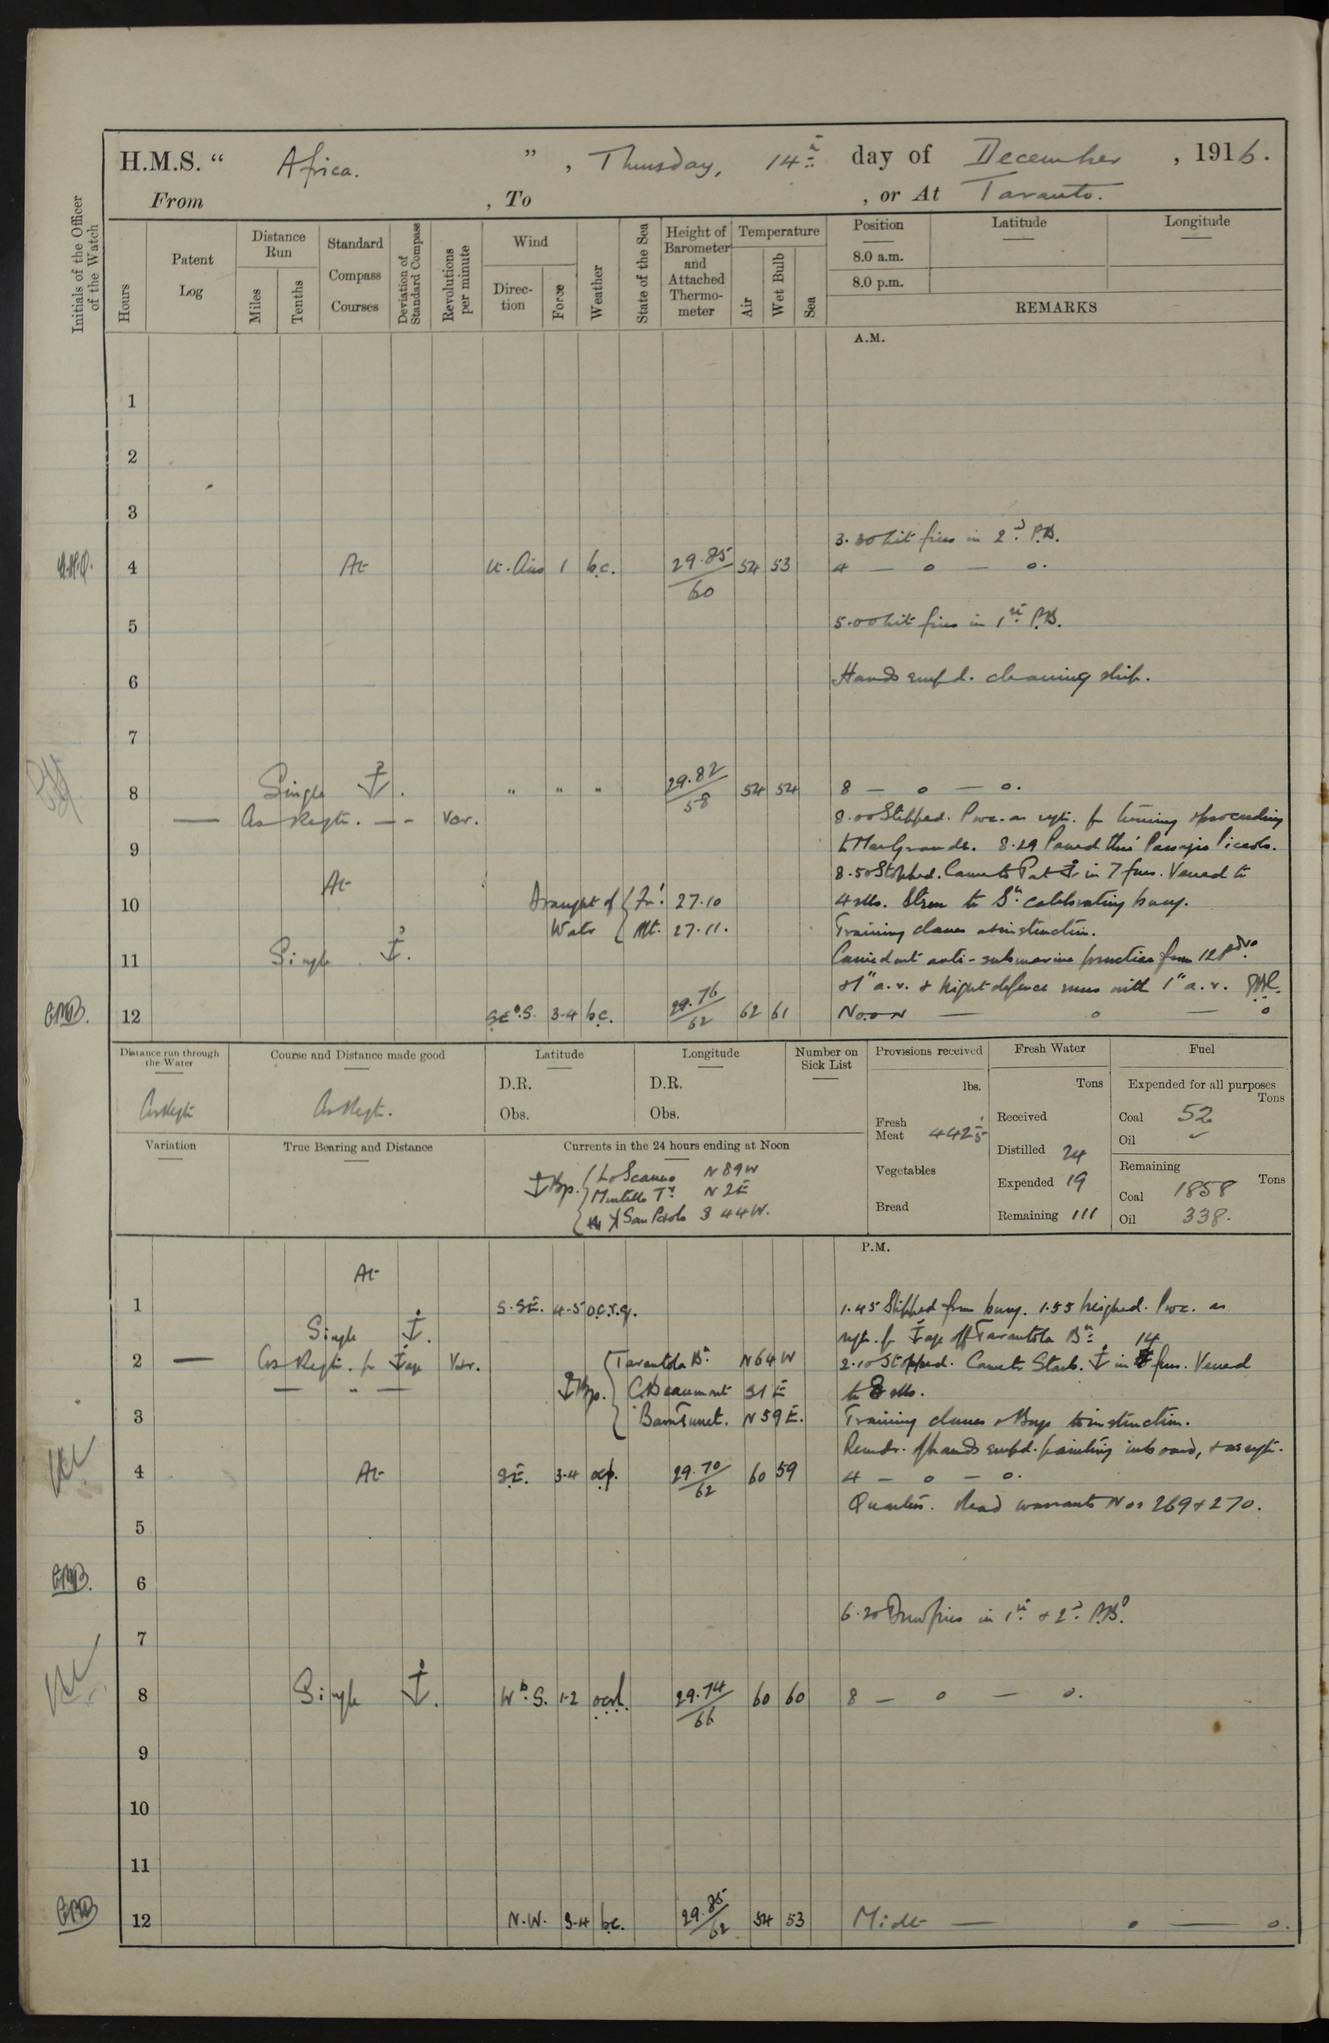 H.M.S. “ Africa. ” , Thursday, 14th day of December , 1916.
From , To , or At Taranto.
Initials of the Officer of the Watch
Hours
Patent Log
Distance Run
Miles
Tenths
Standard Compass Courses
Deviation of Standard Compass
Revolutions per minute
Wind
Direction
Force
Weather
State of the Sea
Height of Barometer and Attached Thermometer
Temperature
Air
Wet Bulb
Sea
Position
Latitude
Longitude
8.0 a.m.
8.0 p.m.
REMARKS
A.M.
1
2
3
3.30 Lit fires in 2nd P.B.
4 At Lt. Airs 1 b.c. 29.85/60 54 53 4 — o — o.
5 5.00 Lit fires in 1st P.B.
6 Hands empd. cleaning ship.
7
8 Single ⚓. " " " 29.82/58 54 54 8 — o — o.
— As Reqte. — - Var. 8.00 Slipped. Proc. as reqte. for turning & proceeding
9 to Mar Grande. 8.29 Passed thro' Passagio Piccolo.
At 8.50 Stopped. Came to Port ⚓ in 7 fms. Veered to
10 Draught of Water { For'd. 27.10 4 shs. Stern to Sn. calibrating buoy.
Aft. 27.11. Training classes at instruction.
11 Single ⚓. Carried out anti-submarine practice from 12 Pdrs.
& 1" a.r. & night defence runs with 1" a.r.
12 SE b. S. 3-4 b.c. 29.76/62 62 61 Noon — o — o
Distance run through the Water
As Reqte
Course and Distance made good
As Reqte.
Latitude
D.R.
Obs.
Longitude
D.R.
Obs.
Number on Sick List
Provisions received
lbs.
Fresh Meat 4425
Vegetables
Bread
Fresh Water
Tons
Received
Distilled 24
Expended 19
Remaining 111
Fuel
Expended for all purposes
Tons
Coal 52
Oil
Remaining
Tons
Coal 1858
Oil 338.
Variation
True Bearing and Distance
Currents in the 24 hours ending at Noon
⚓ Brgs. Lo Scanno N 89 W
N 2 E
San Paolo S 44 W.
P.M.
At
1 S.SE. 4-5 o.c.r.q. 1.45 Slipped from buoy. 1.55 Weighed. Proc. as
Single ⚓. reqte. for ⚓age off Tarantola Bn.
2 — As Reqte. for ⚓age Var. Tarantola Bn. N 64 W 2.10 Stopped. Came to Starb. ⚓ in 14 fms. Veered
— " — ⚓ Brgs. C. Beaumont S 1 E to 8 shs.
3 N 59 E. Training classes & Boys to instruction.
Remdr. of hands empd. painting inboard, & as reqte.
4 At S.E. 3-4 o.c.p. 29.70/62 60 59 4 — o — o.
Quarters. Read warrants Nos 269 & 270.
5
6
6.20 Drew fires in 1st & 2nd P.Bs.
7
8 Single ⚓. W b. S. 1-2 29.74/66 60 60 8 — o — o.
9
10
11
12 N.W. 3-4 b.c. 29.85/62 54 53 Midt — o — o.